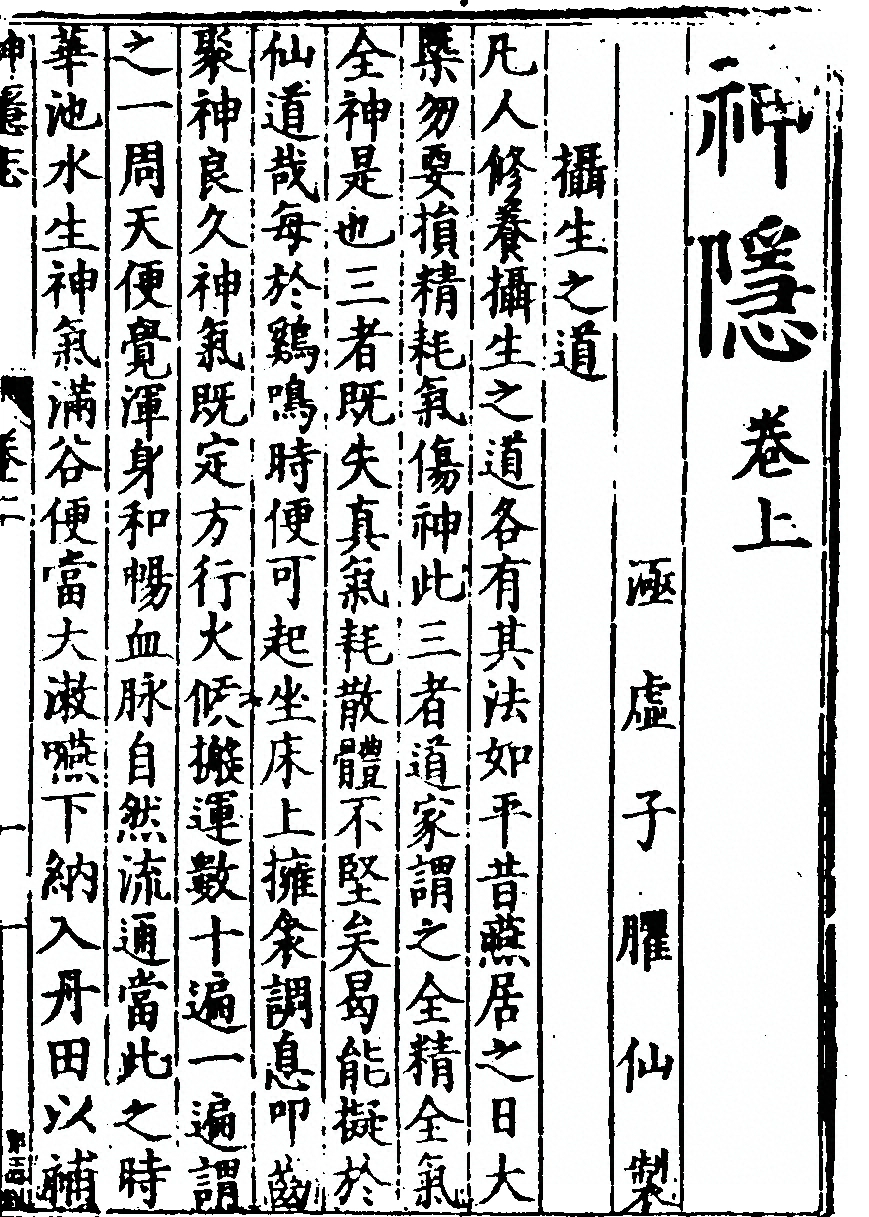 神隱卷上
涵虛子臞仙製
攝生之道
凡人修養攝生之道各有其法如平昔燕居之日大
槩勿要損精耗氣傷神此三者道家謂之全精全氣
全神是也三者既失真氣耗散體不堅矣曷能擬於
仙道哉每於鷄鳴時便可起坐床上擁衾調息叩齒
聚神良久神氣既定方行火候搬運數十遍一遍謂
之一周天便覺渾身和暢血脉自然流通當此之時
華池水生神氣滿谷便當大漱嚥下納入丹田以補
神隱志
卷上